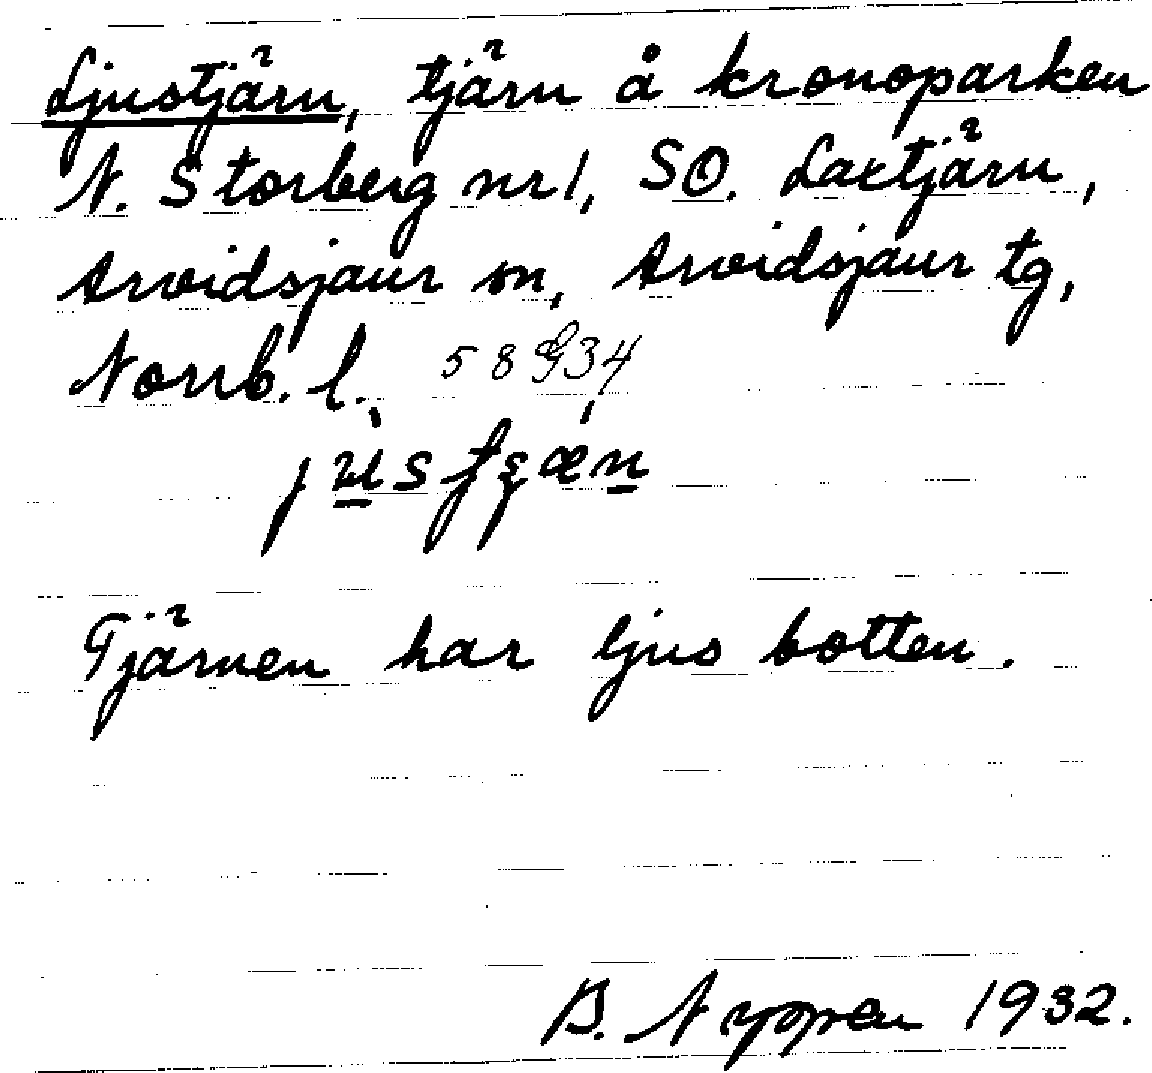 Ljustjärn, tjärn å kronoparken
N. Storberg nr 1, SO. Laxtjärn,
Arvidsjaur sn, Arvidsjaur tg,
Norrb. l.
Tjärnen har ljus botten.
B. Nyppen 1932.